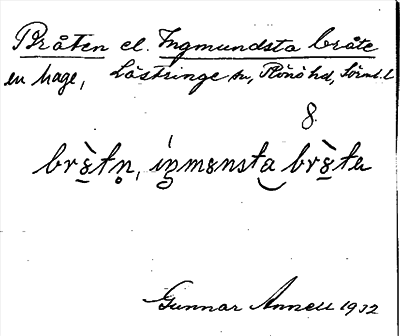 Bråten el. Ingmundsta bråte
en hage, Lästringe sn, Rönö hd, Sörml. l
8.
brə̀̀tn̥, íŋmɵnsta brə̀tɐ
Gunnar Annell 1932